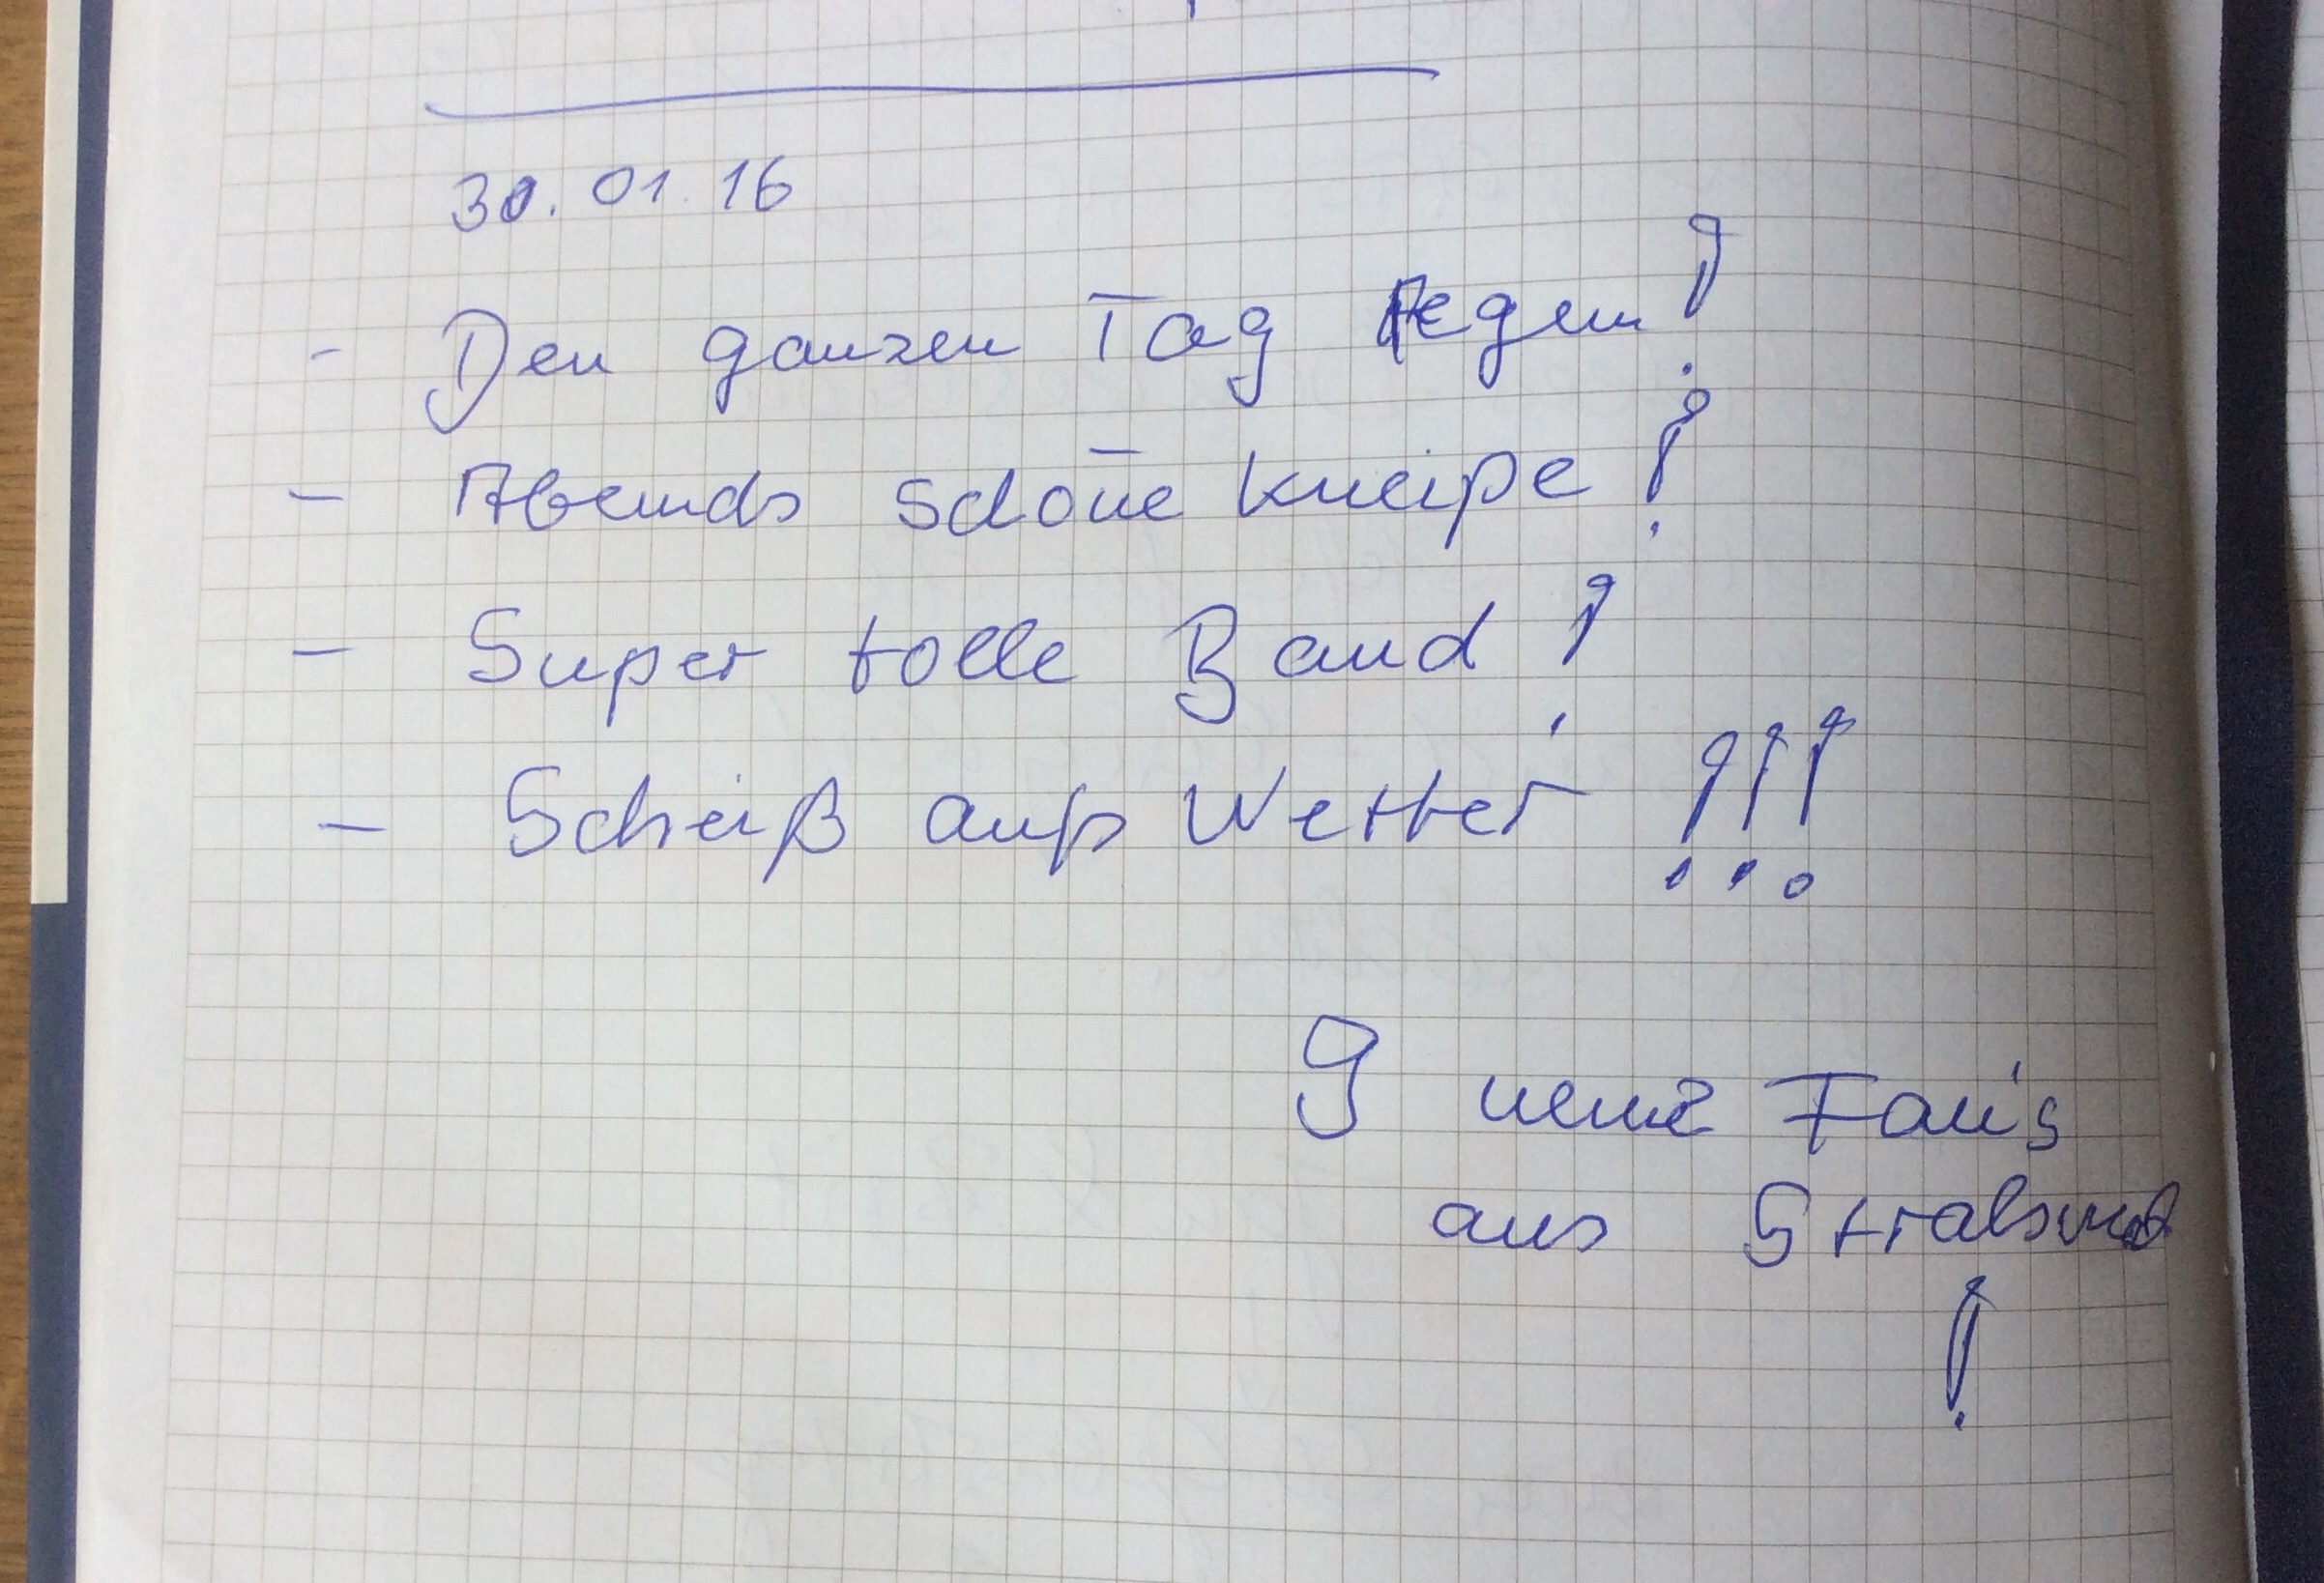 30.01.16
- Den ganzen Tag Regen!
- Abends schöne Kneipe!
- Super tolle Band!
- Scheiß aufs Wetter!!!
9 neue Fan's
aus Stralsund
!